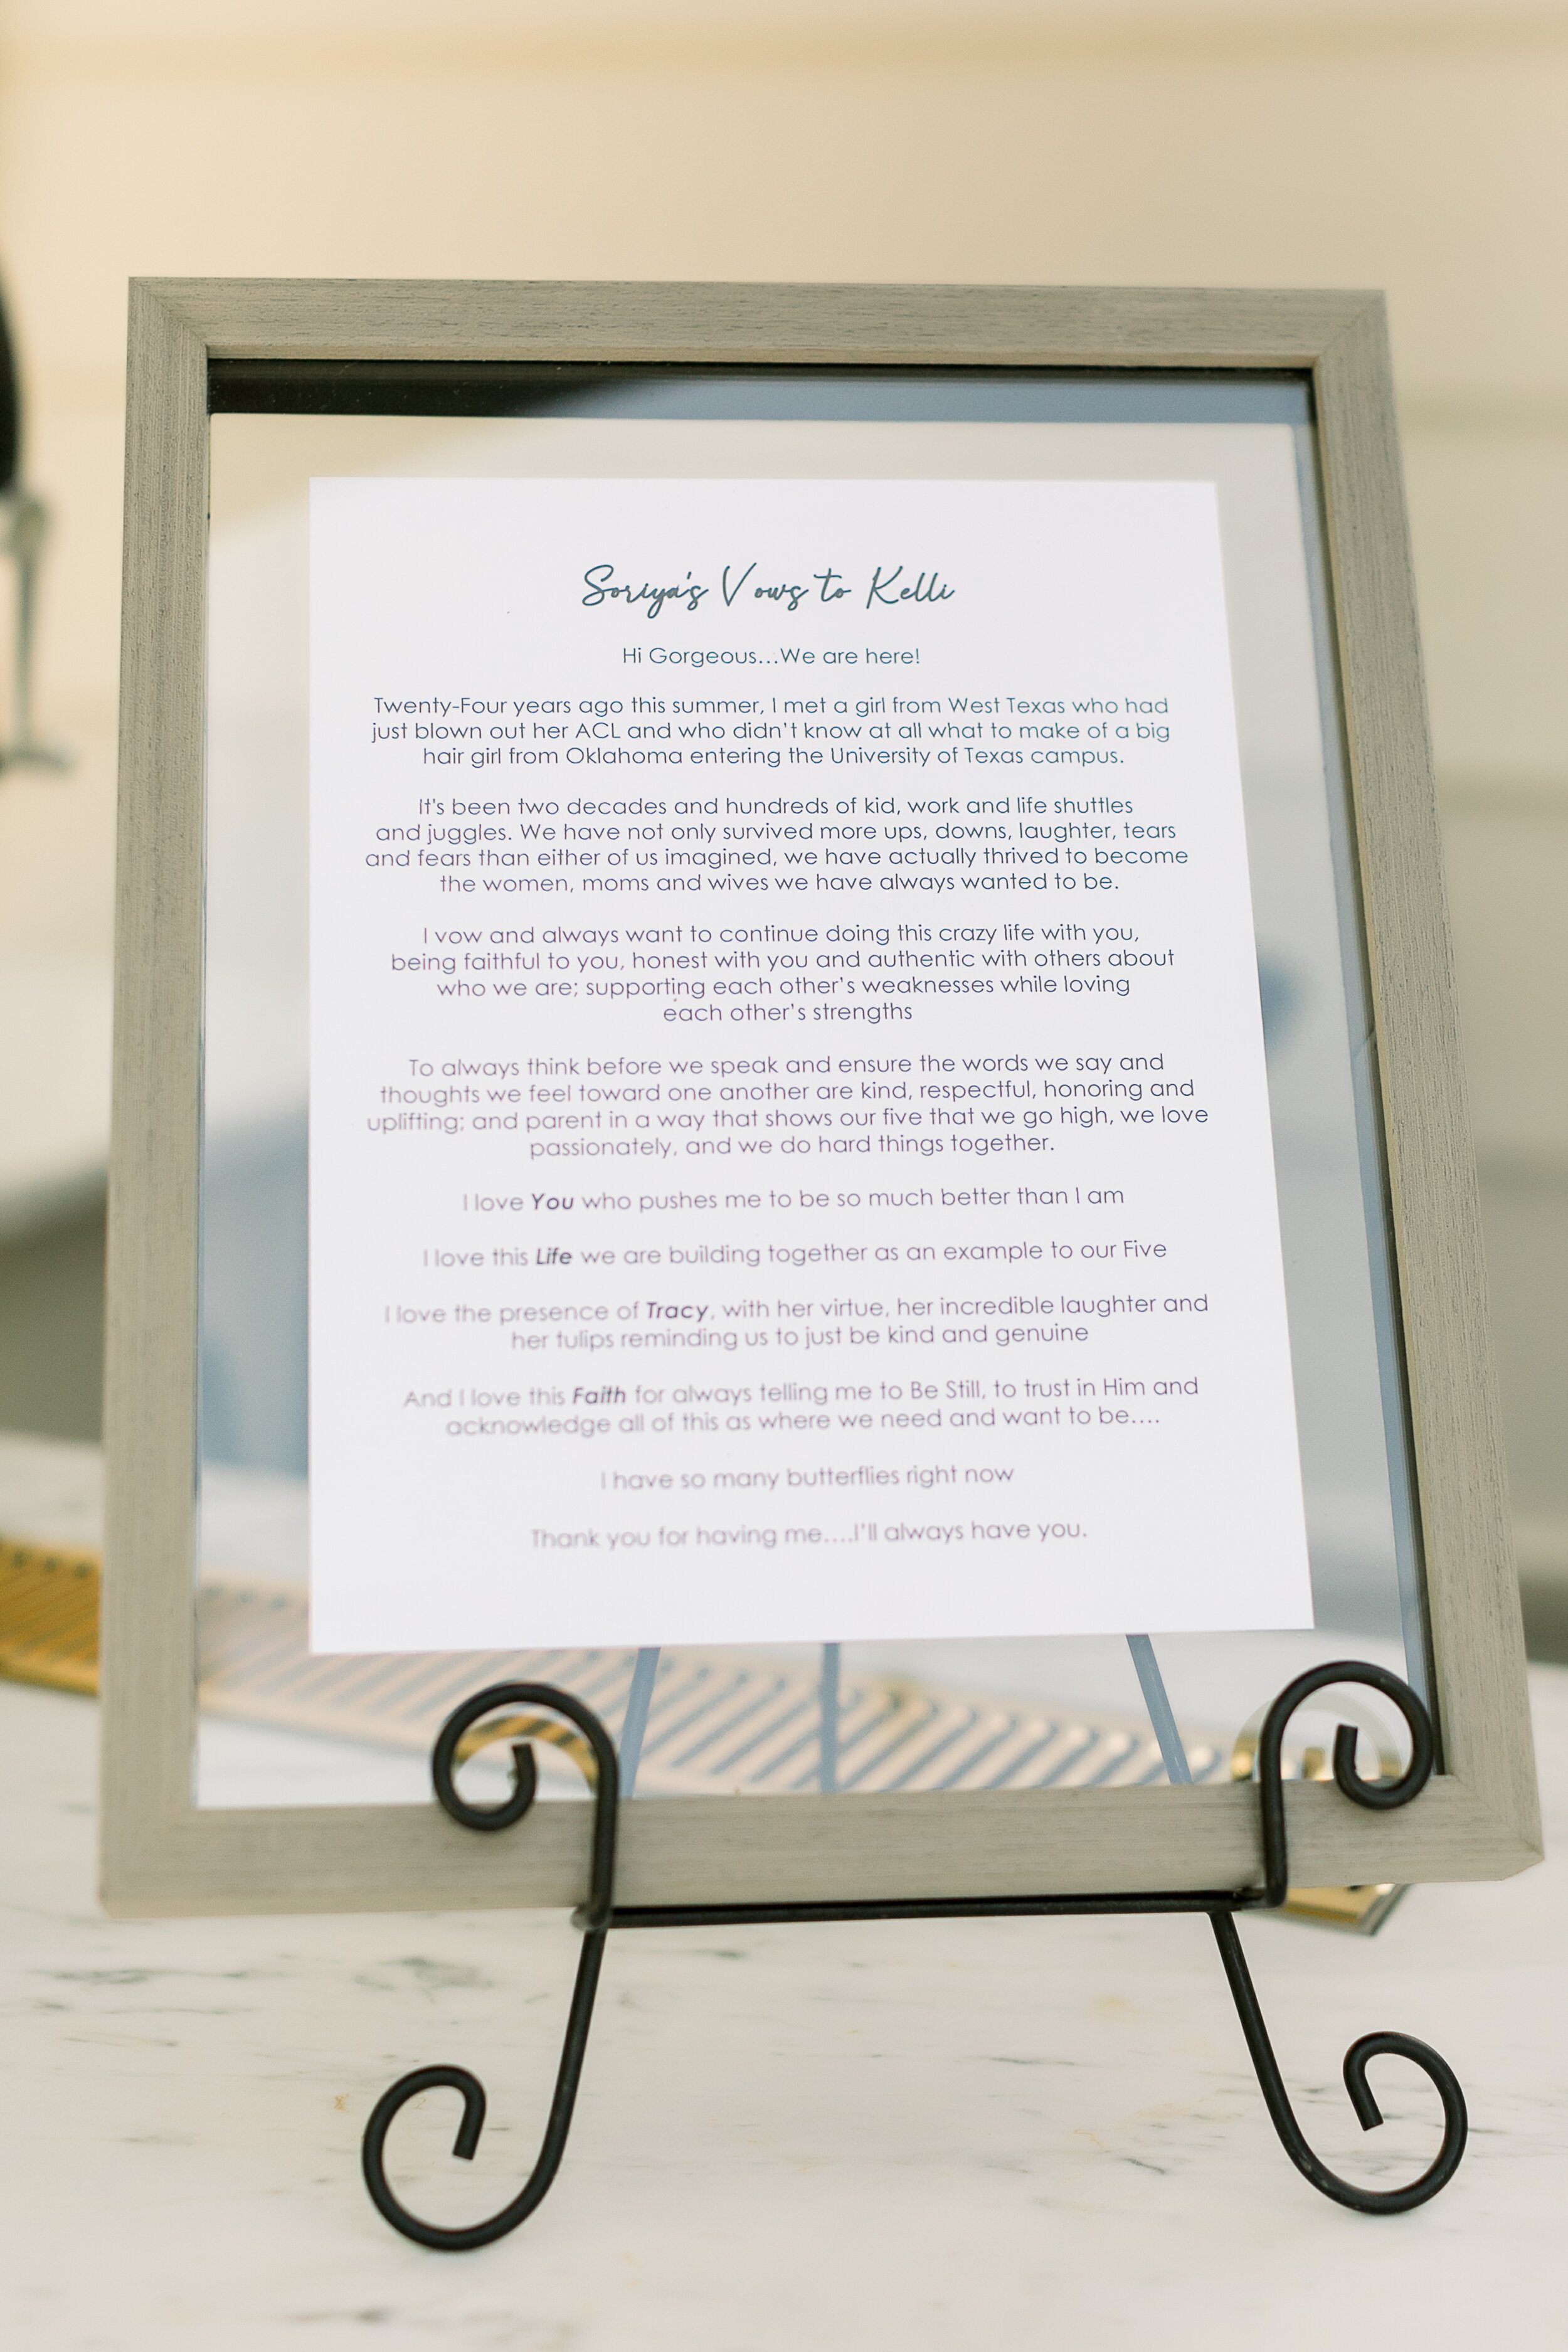 Soriya's Vows to Kelli
Hi Gorgeous...We are here!
Twenty-Four years ago this summer, I met a girl from West Texas who had
just blown out her ACL and who didn't know at all what to make of a big
hair girl from Oklahoma entering the University of Texas campus.
It's been two decades and hundreds of kid, work and life shuttles
and juggles. We have not only survived more ups, downs, laughter, tears
and fears than either of us imagined, we have actually thrived to become
the women, moms and wives we have always wanted to be.
I vow and always want to continue doing this crazy life with you,
being faithful to you, honest with you and authentic with others about
who we are; supporting each other's weaknesses while loving
each other's strengths
To always think before we speak and ensure the words we say and
thoughts we feel toward one another are kind, respectful, honoring and
uplifting; and parent in a way that shows our five that we go high, we love
passionately, and we do hard things together.
I love You who pushes me to be so much better than I am
I love this Life we are building together as an example to our Five
I love the presence of Tracy, with her virtue, her incredible laughter and
her tulips reminding us to just be kind and genuine
And I love this Faith for always telling me to Be Still, to trust in Him and
acknowledge all of this as where we need and want to be....
I have so many butterflies right now
Thank you for having me....I'll always have you.